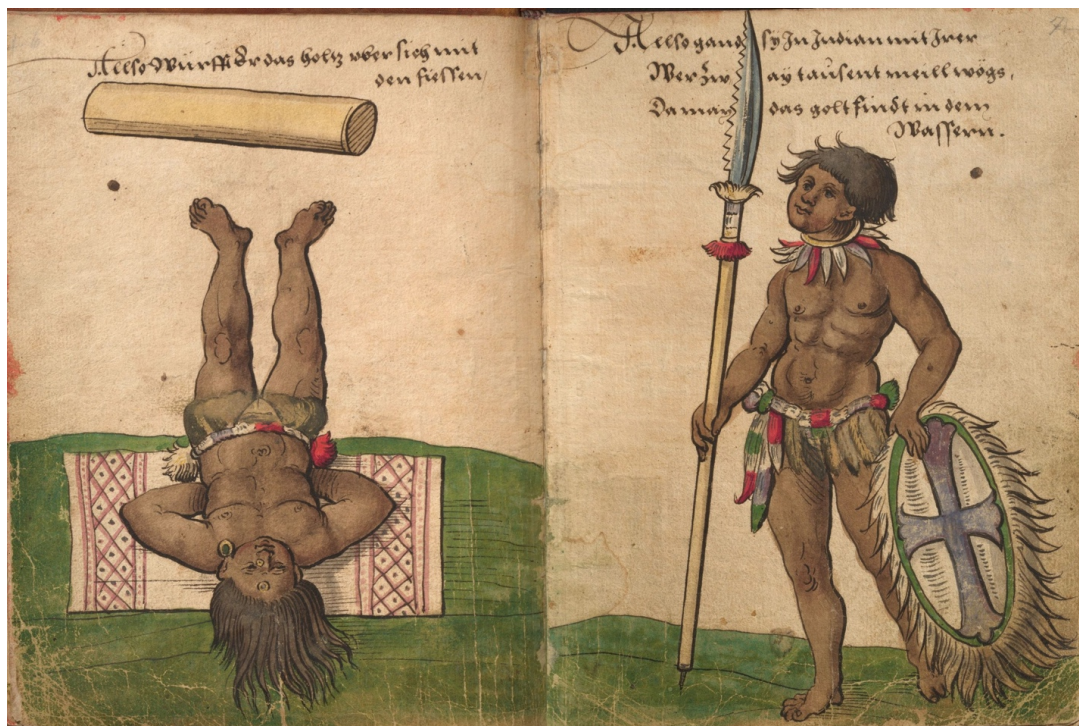 Allso Würfft Er das holtz vber sich mit
den fiessen /
Allso gand sy In Indian mit Irer
Wer Zway taüsent meill wögs,
Da man das golt findt in dem
Wassern.